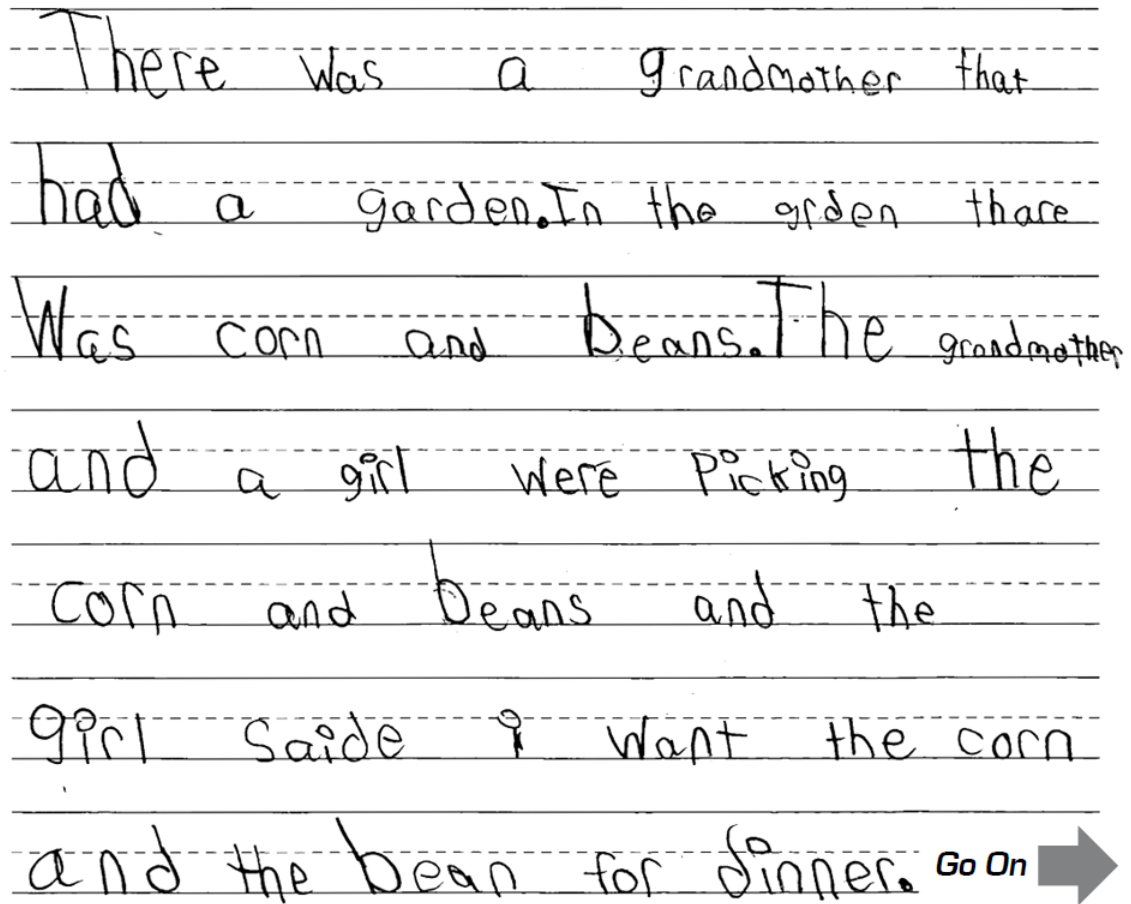 There was a grandmother that
had a garden.In the grden thare
Was corn and beans.The grandmother
and a girl were Picking the
corn and beans and the
girl saide i want the corn
and the bean for dinner. Go On